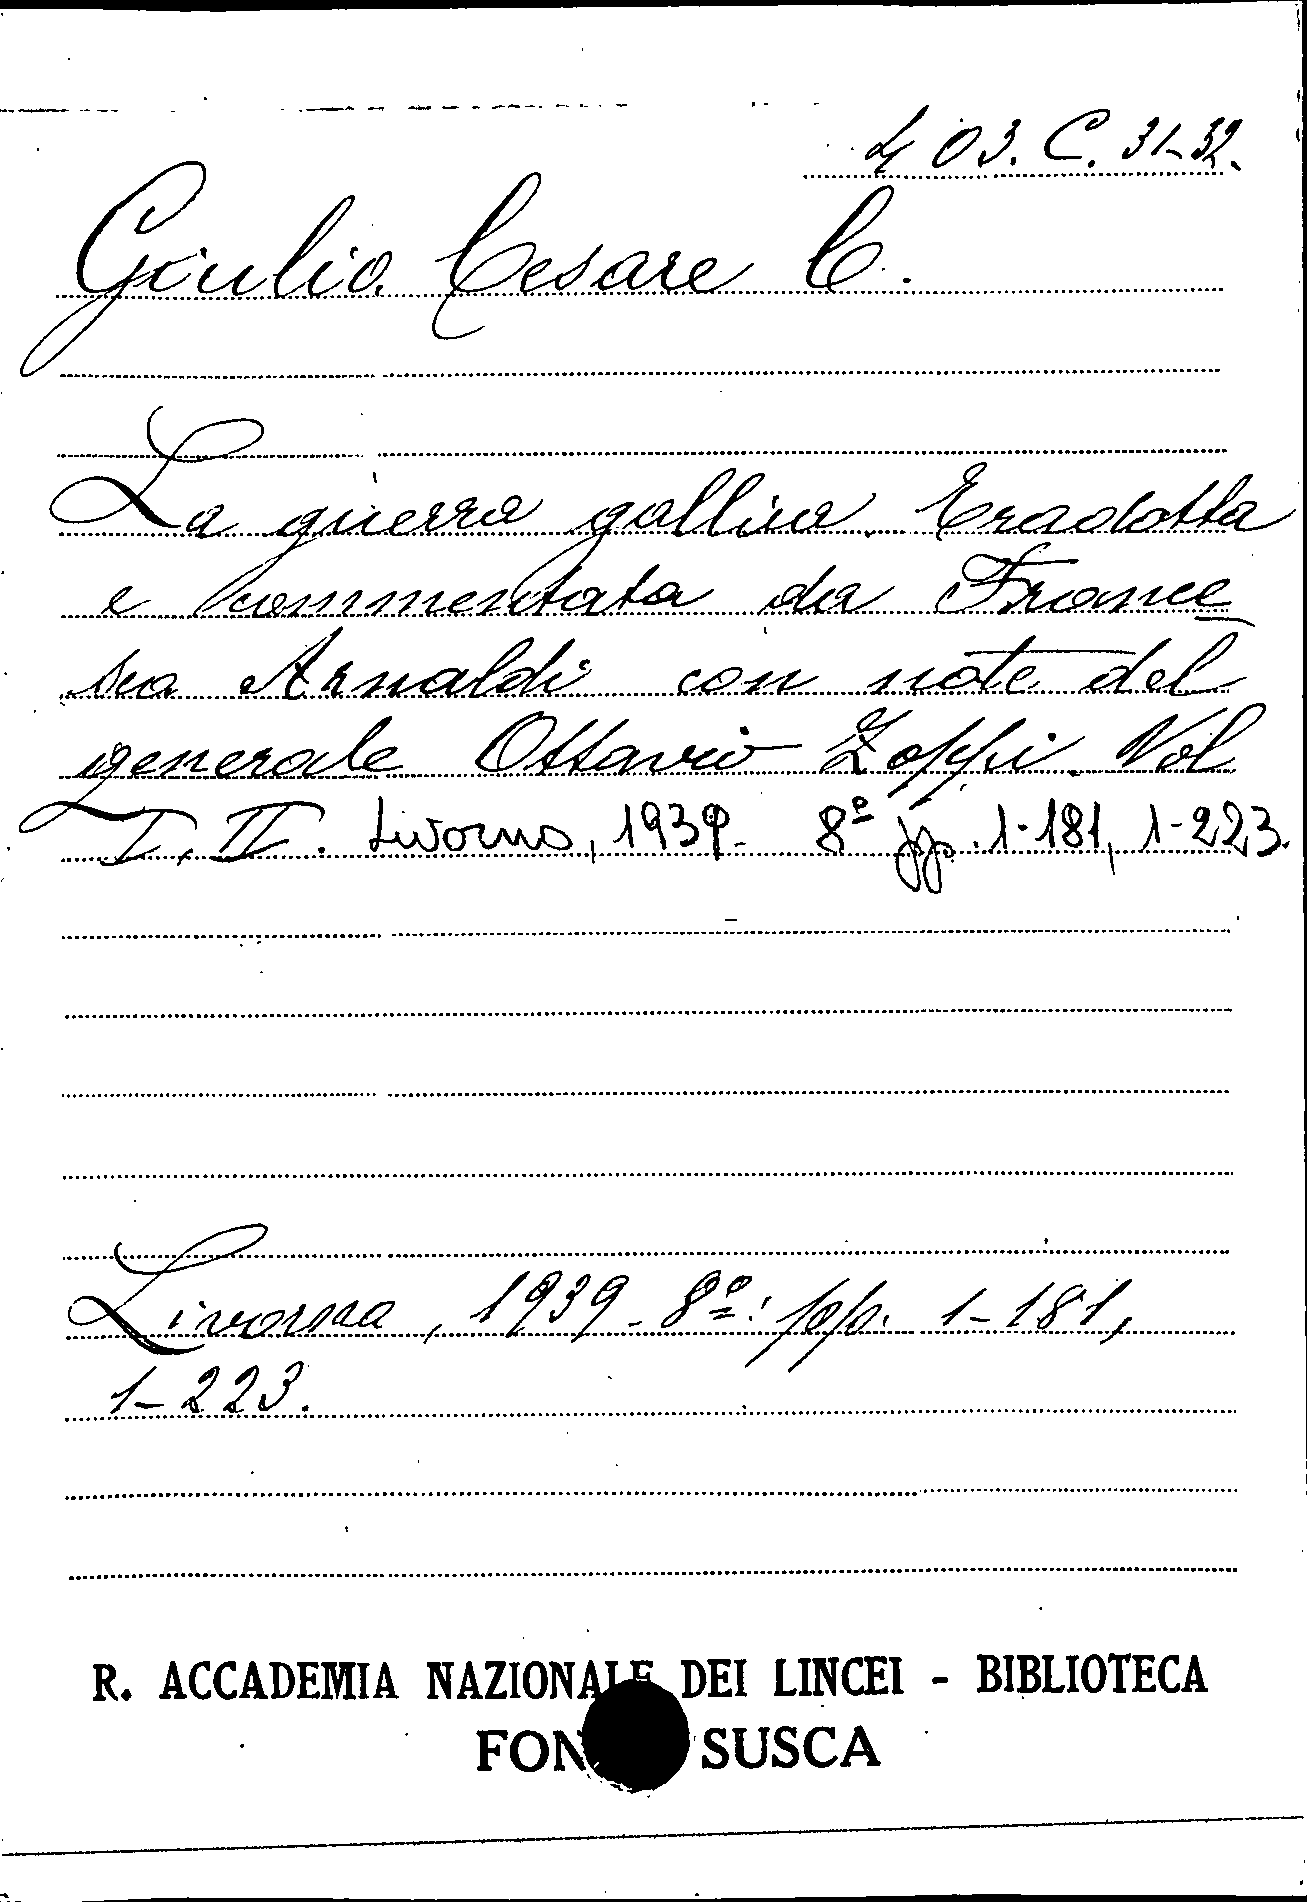 403. C. 31-32.
Giulio Cesare C.
La guerra gallica. Tradotta
e commentata da France
sco Arnaldi con note del
generale Ottavio Zoppi. Vol
I, II. Livorno, 1939. 8º pp. 1-181, 1-223.
Livorno, 1939. 8º: pp. 1-181,
1-223.
R. ACCADEMIA NAZIONALE DEI LINCEI - BIBLIOTECA
SUSCA